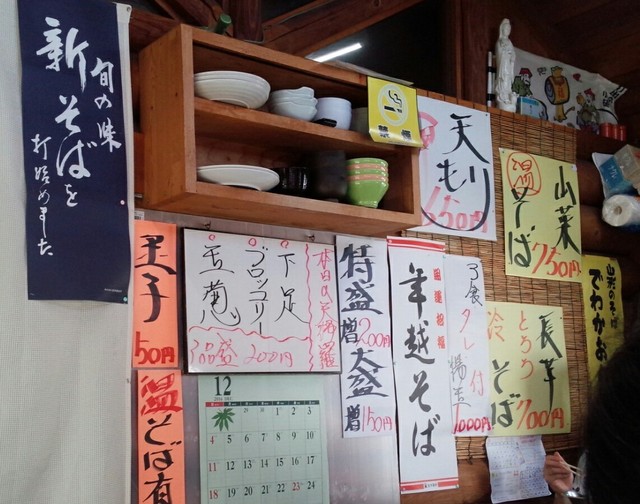 旬の味
新そばを
打始めました
玉子
50円
温そば有
本日の天婦羅
下足
ブロッコリー
玉葱
1品盛 200円
12
1 2 3
4 5 6 7 8 9 10
11 12 13 14 15 16 17
18 19 20 21 22 23 24
特盛
増200円
大盛
増150円
年越そば
3食
タレ付
1000円
禁煙
天もり
750円
温
山菜
そば
750円
冷
長芋
とろろ
そば
700円
山形のそば
でわかおり